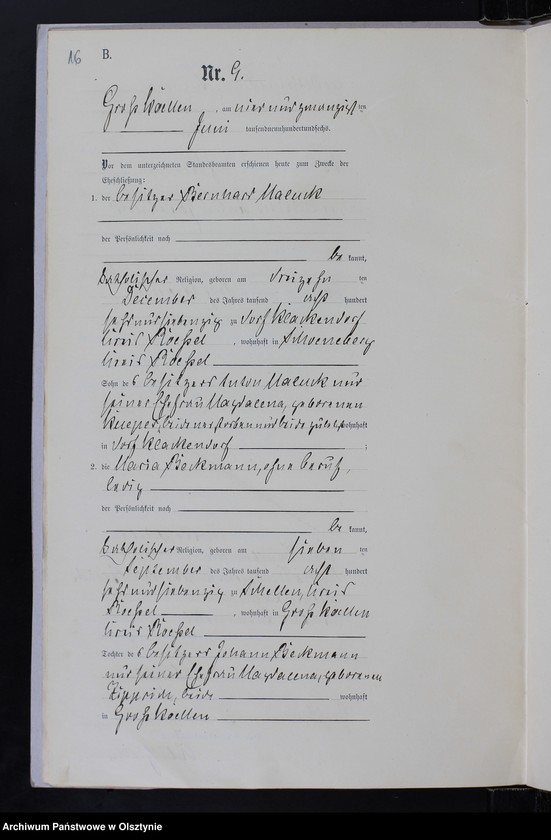 16 B.
Nr. 9.
Groß Köllen, am vier und zwanzigsten
Juni tausendneunhundertundsechs.
Vor dem unterzeichneten Standesbeamten erschienen heute zum Zwecke der
Eheschließung:
1. der Besitzer Bernhard
der Persönlichkeit nach
be kannt,
katholischer Religion, geboren am dreizehn ten
December des Jahres tausend acht hundert
sechs und siebenzig zu Dorf Klackendorf
Kreis Roessel, wohnhaft in Schoeneberg
Kreis Roessel
Sohn des Besitzers Anton und
seiner Ehefrau Magdalena, geborenen
beide verstorben und beide zuletzt wohnhaft
in Dorf Klackendorf ;
2. die Maria Beckmann, ohne Beruf,
ledig
der Persönlichkeit nach
be kannt,
katholischer Religion, geboren am sieben ten
September des Jahres tausend acht hundert
sechs und siebenzig zu Schellen, Kreis
Roessel, wohnhaft in Groß Köllen
Kreis Roessel
Tochter des Besitzers Johann Beckmann
und seiner Ehefrau Magdalena, geborenen
beide wohnhaft
in Groß Köllen
Archiwum Państwowe w Olsztynie